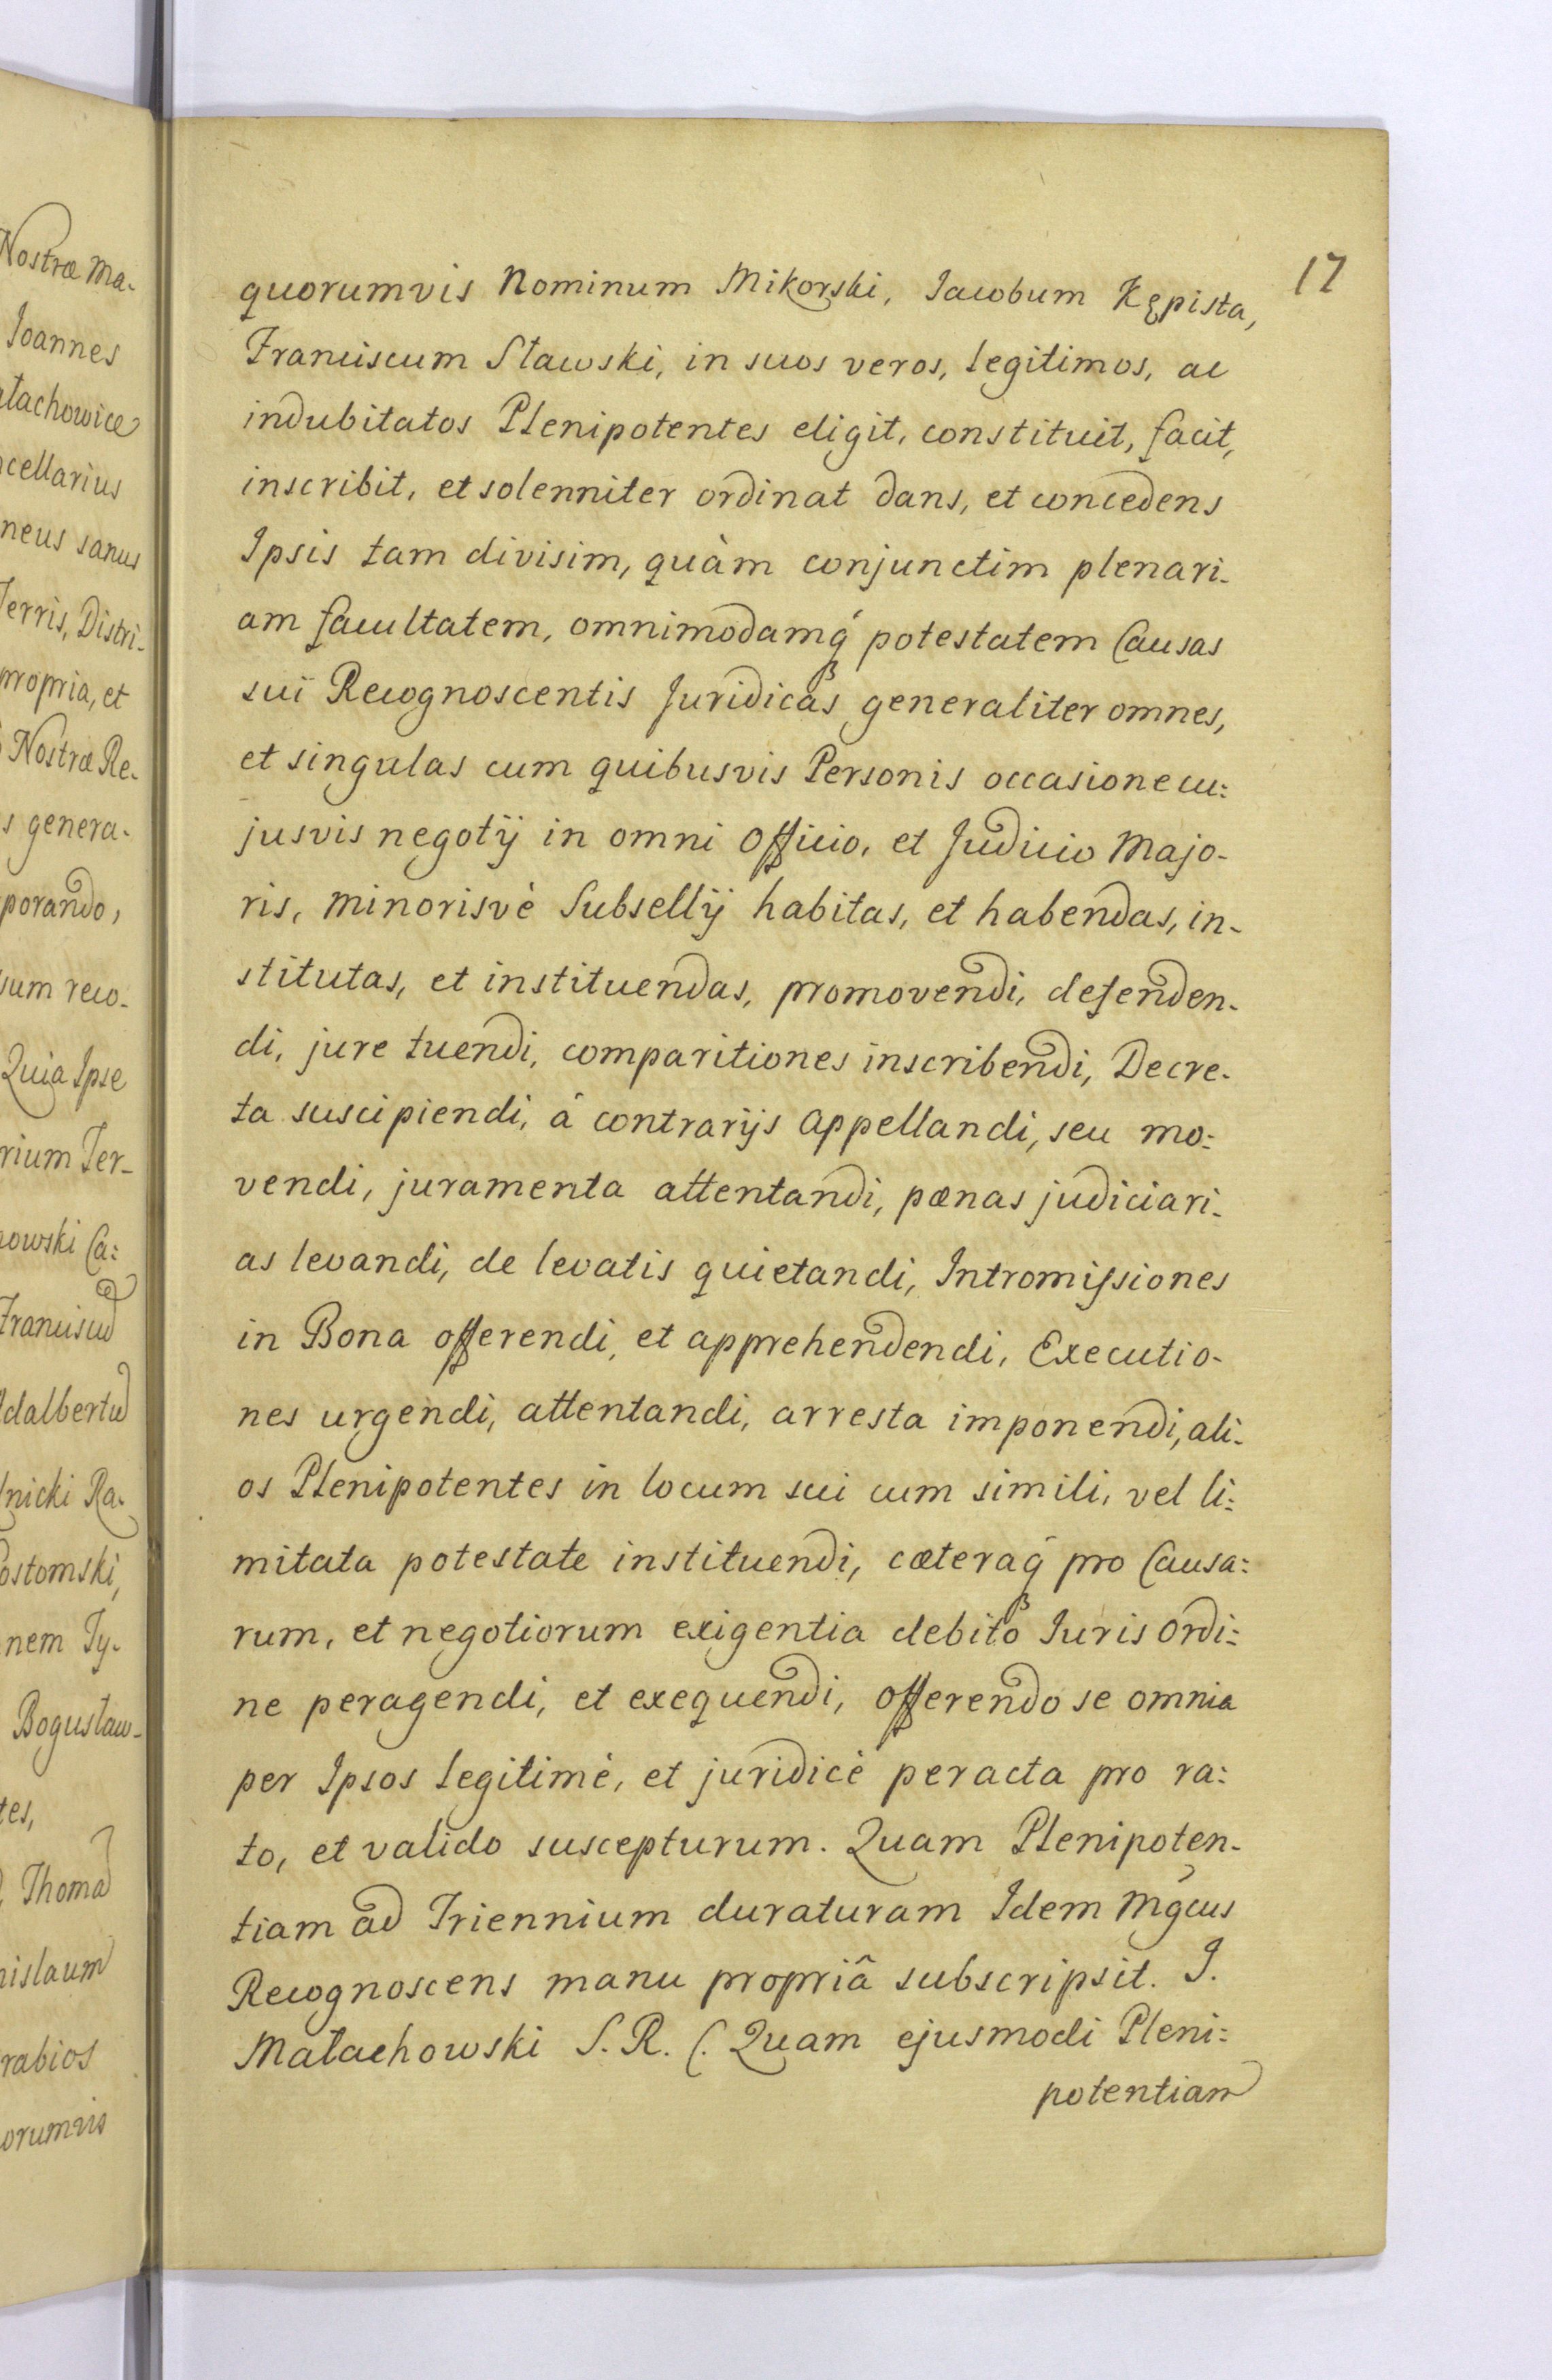 Nostræ Ma-
Joannes
cellarius
neus sanus
Terris, Distri-
propria, et
Nostræ Re-
s genera-
porando,
sum reco-
Quia Ipse
rium Ter-
owski Ca:
dalbertu
nicki Ra-
ostomski,
nem Ty-
Bogusław-
tes,
Thoma
nislaum
rabios
orumvis
17
quorumvis Nominum Mikorski, Iacobum Kępista,
Franciscum Sławski, in suos veros, legitimos, ac
indubitatos Plenipotentes eligit, constituit, facit,
inscribit, et solenniter ordinat dans, et concedens
Ipsis tam divisim, quàm conjunctim plenari-
am facultatem, omnimodamq́ potestatem Causas
sui Recognoscentis Juridicas generaliter omnes,
et singulas cum quibusvis Personis occasione cu:
jusvis negotij in omni Officio, et Judicio Majo-
ris, minorisvè Subsellij habitas, et habendas, in-
stitutas, et instituendas, promovendi, defenden-
di, jure tuendi, comparitiones inscribendi, Decre-
ta suscipiendi, á contrarijs appellandi, seu mo:
vendi, juramenta attentandi, pœnas judiciari-
as levandi, de levatis quietandi, Intromissiones
in Bona offerendi, et apprehendendi, Executio-
nes urgendi, attentandi, arresta imponendi, ali-
os Plenipotentes in locum sui cum simili, vel li:
mitata potestate instituendi, cæteraq́ pro Causa:
rum, et negotiorum exigentia debito Iuris ordi:
ne peragendi, et exequendi, offerendo se omnia
per Ipsos legitimè, et juridicè peracta pro ra:
to, et valido suscepturum. Quam Plenipoten-
tiam ad Triennium duraturam Idem Mgcus
Recognoscens manu propriâ subscripsit. J.
Małachowski S. R. (. Quam ejusmodi Pleni:
potentiam